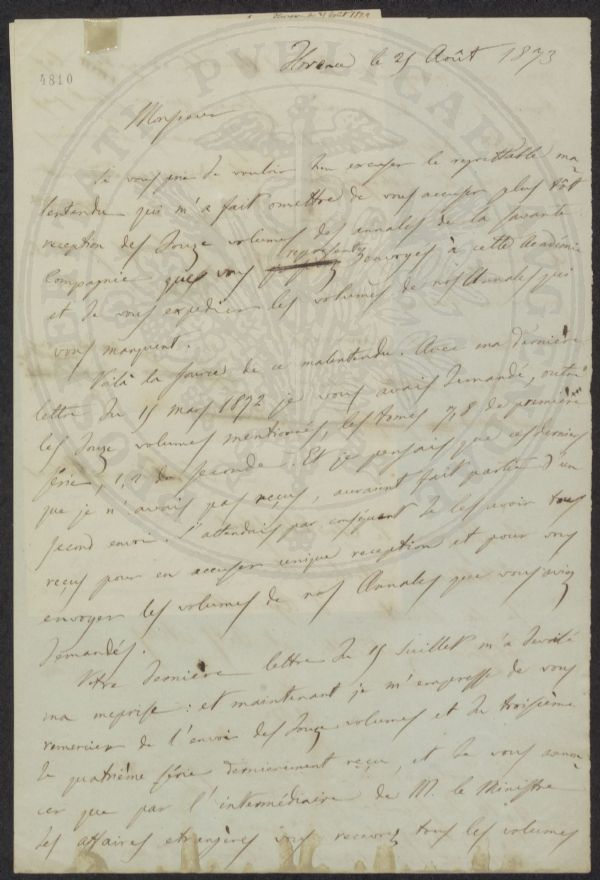 4810
Florence le 25 Août 1873
Monsieur
Je vous prie de vouloir bien excuser le regrettable ma-
lentendu qui m'a fait omettre de vous accuser plus tôt
reception des douze volumes des annales de la savante
Compagnie que vous representez envoyés à cette Académie
et de vous expedier les volumes de nos Annales qui
vous manquent.
Voilà la source de ce malentendu. Avec ma dernière
lettre du 15 mars 1872 je vous avais demandé, outre
les douze volumes mentionnés, les tomes 7, 8 de première
série, 1, 2 de seconde. Et je pensais que ces derniers
que je n'avais pas reçus, auraient fait partie d'un
second envoi. J'attendais par conséquent à les avoir tous
reçus pour en accuser unique reception et pour vous
envoyer les volumes de nos Annales que vous aviez
demandés.
Votre dernière lettre du 15 Juillet m'a devoilé
ma meprise: et maintenant je m'empresse de vous
remercier de l'envoi des douze volumes et du troisième
de quatrième série dernierement reçu, et de vous annon-
cer que par l'intermédiaire de M. le Ministre
des affaires etrangères vous recevrez tous les volumes